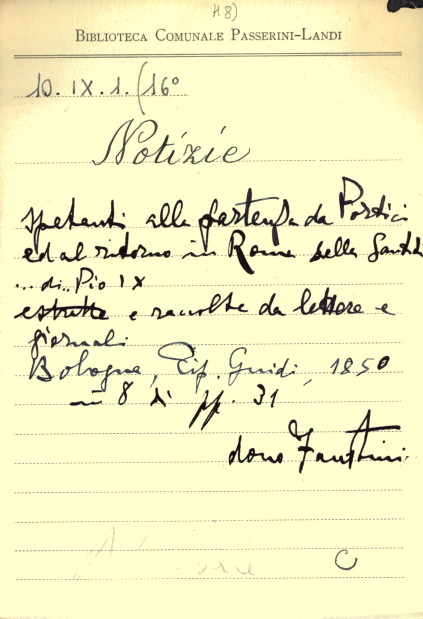 H8)
BIBLIOTECA COMUNALE PASSERINI-LANDI
10. IX. 1. (16°
Notizie
spettanti alla partenza da Portici
ed al ritorno in Roma della Santità
... di .. Pio IX
estratte e raccolte da lettere e
giornali
Bologna, Tip. Guidi, 1850
in 8 di pp. 31
dono Faustini
C